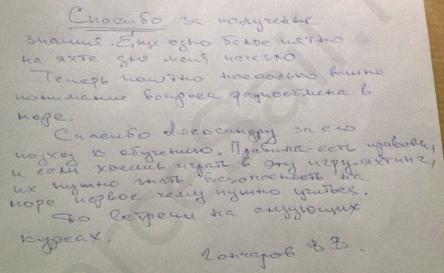 Спасибо за полученые
знания. Еще одно белое пятно
на яхте для меня исчезло
Теперь понятно насколько важно
понимание вопроса радиообмена в
море.
Спасибо Александру за его
подход к обучению. Правила-есть правила,
и если хочешь играть в эту игру-яхтинг,
их нужно знать. Безопасность на
море первое чему нужно учиться.
До встречи на следующих
курсах.
Гончаров В.В.